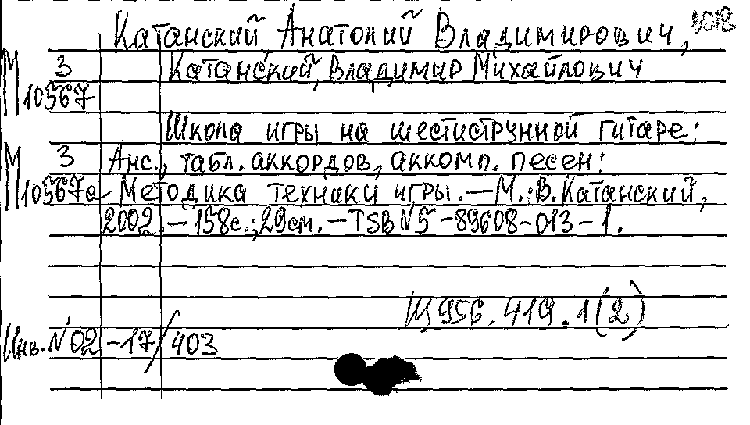 Катанский Анатолий Владимирович,
М 3 Катанский, Владимир Михайлович
10567
Школа игры на шестиструнной гитаре:
М 3 Анс., табл. аккордов, аккомп. песен:
10567а - Методика техники игры. — М.: В. Катанский,
2002. — 158с.; 29см. — TSBN5-89608-013-1.
Щ956.419.1(2)
Инв. №02-17/403